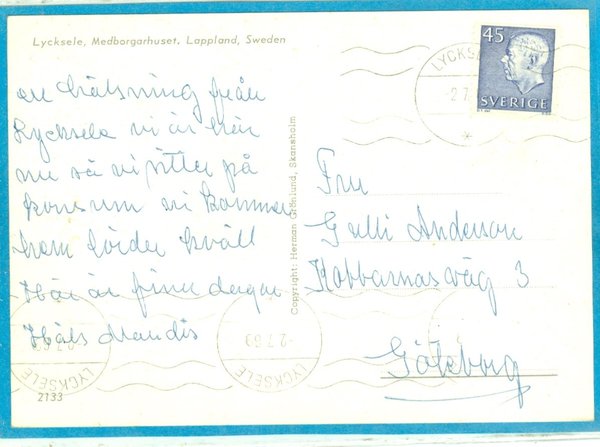 Lycksele, Medborgarhuset, Lappland, Sweden
en hälsning från
Lycksele vi är här
nu så vi sitter på
konsum vi kommer
hem lördag kväll
Här är fina dagar
Häls
2133
Copyright: Herman Grönlund, Skansholm
45
SVERIGE
LYCKSELE
-2.7.69
LYCKSELE
-2.7.69
LYCKSELE
Fru
Gulli Anderson
Kobbarnas väg 3
Göteborg